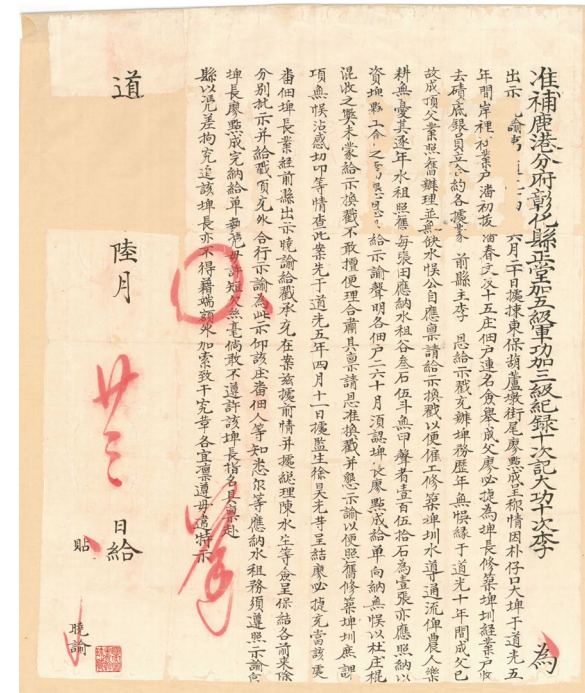 准補鹿港分府彰化縣正堂加五級軍功加三級紀錄十次記大功十次李 為
出示 諭 六月二日據揀東保葫蘆墩街尾廖點成呈稱情因朴仔口大埤于道光五
年間岸裡社業戶潘初拔潘春文及十五庄佃戶連名僉舉成父廖必捷為埤長修築埤圳經業戶收
去磧底銀員立合約各據蒙 前縣主李 恩給示戳充辦埤務歷年無悞緣于道光十年間成父已
故成頂父業照舊辦理並無缺水悞公自應稟請給示換戳以便雇工修築埤圳水導通流俾農人樂
耕無憂其逐年水租照舊每張田應納水租谷叁石伍斗無甲聲者壹百伍拾石為壹張亦應照納以
資埤 工合之 給示諭聲明各佃戶二六十月須認埤長廖點成給單向納無悞以杜庄棍
混收之獘未蒙給示換戳不敢擅便理合肅具稟請恩准換戳并懇示諭以便照舊修築埤圳庶課
項無悞沾感切叩等情查此案先于道光五年四月十一日據監生徐昊光等呈結廖必捷充當該處
番佃埤長業經前縣出示曉諭給戳承充在案茲據前情并據総理陳水生等僉呈保結各前來除
分別批示并給戳頂充外合行示諭為此示仰該庄番佃人等知悉尔等應納水租務須遵照示諭向
埤長廖點成完納給單執凴毋許短欠無毫倘敢不遵許該埤長指名具稟赴
縣以凴差拘究追該埤長亦不得藉端額外加索致干究革各宜凛遵毋違特示
道 陸月 廿三 日給
貼 曉諭